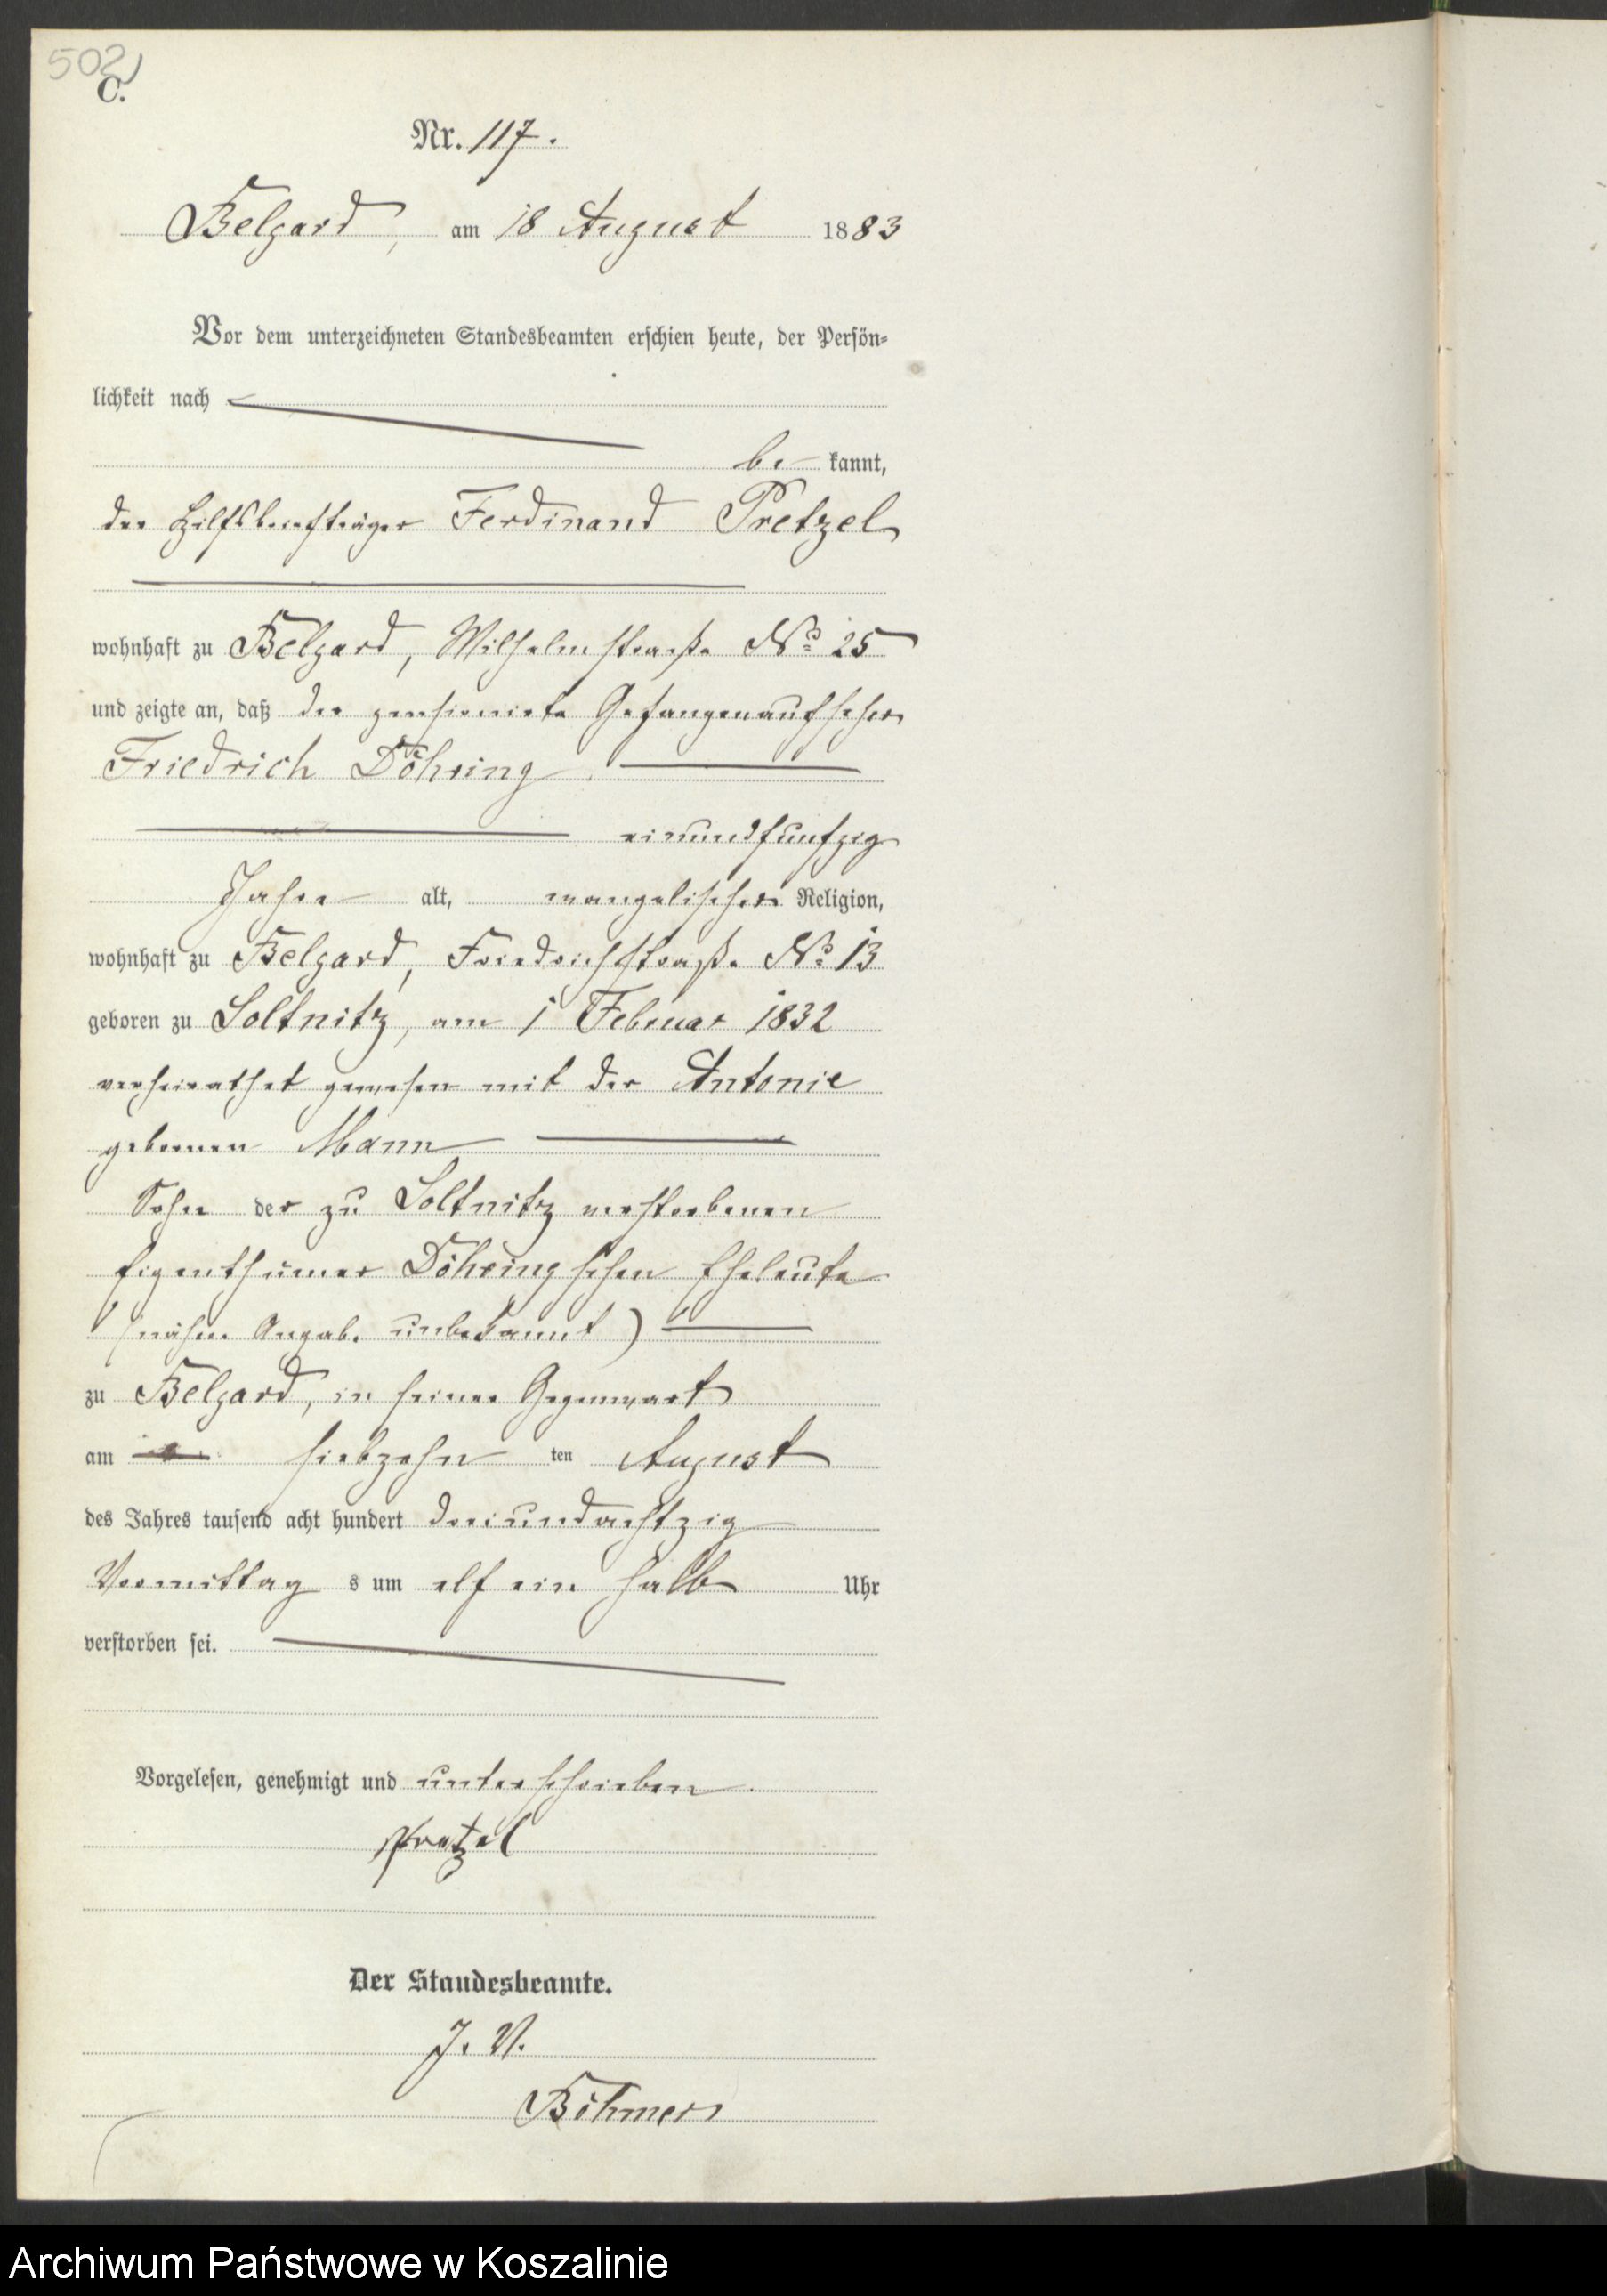 502
C.
Nr. 117.
Belgard, am 18 August 1883
Vor dem unterzeichneten Standesbeamten erschien heute, der Persön-
lichkeit nach
be kannt,
der Hilfsbriefträger Ferdinand Pretzel
wohnhaft zu Belgard, Wilhelmstraße No 25
und zeigte an, daß der pensionirte Gefangenaufseher
Friedrich Döhring
einundfunfzig
Jahre alt, evangelischer Religion,
wohnhaft zu Belgard, Friedrichstraße No 13
geboren zu Soltnitz, am 1 Februar 1832
verheirathet gewesen mit der Antonie
gebornen Mann
Sohn der zu Soltnitz verstorbenen
Eigenthümer Döhringschen Eheleute
(nähere Angabe unbekannt)
zu Belgard, in seiner Gegenwart
am siebzehn ten August
des Jahres tausend acht hundert dreiundachtzig
Vormittag s um elf ein halb Uhr
verstorben sei.
Vorgelesen, genehmigt und unterschrieben.
Pretzel
Der Standesbeamte.
J. V.
Böhmer
Archiwum Państwowe w Koszalinie